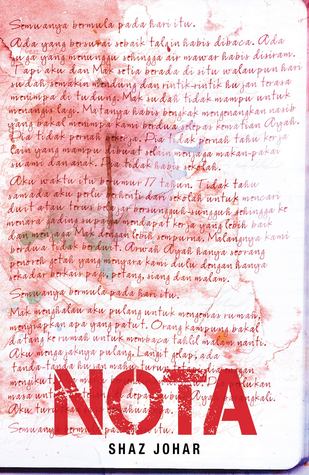 Semuanya bermula pada hari itu.
Ada yang bersurai sebaik talqin habis dibaca. Ada
juga yang menunggu sehingga air mawar habis disiram.
Tapi aku dan Mak setia berada di situ walaupun hari
sudah semakin mendung dan rintik-rintik hujan terasa
menimpa di tudung. Mak sudah tidak mampu untuk
menangis lagi. Matanya habis bengkak mengenangkan nasib
yang bakal menimpa kami berdua selepas kematian Ayah.
Dia tidak pernah bekerja. Dia tidak pernah tahu kerja
lain yang mampu dibuat selain menjaga makan-pakai
suami dan anak. Dia tidak habis sekolah.
Aku waktu itu berumur 17 tahun. Tidak tahu
samada aku perlu berhenti dari sekolah untuk mencari
duit atau terus belajar bersungguh-sungguh sehingga ke
menara gading supaya mendapat kerja yang lebih baik
dan menjaga Mak dengan lebih sempurna. Malangnya kami
berdua tidak berduit. Arwah Ayah hanya seorang
penoreh getah yang menyara kami dulu dengan hanya
sekadar berkais pagi, petang, siang dan malam.
Semuanya bermula pada hari itu.
Mak menghalau aku pulang untuk mengemas rumah,
menyiapkan apa yang patut. Orang kampung bakal
datang ke rumah untuk membaca tahlil malam nanti.
Aku mengajaknya pulang. Langit gelap, ada
tanda-tanda hujan
mengikut
mara untuk
Aku turu
Semuanya bermula pada hari
NOTA
SHAZ JOHAR